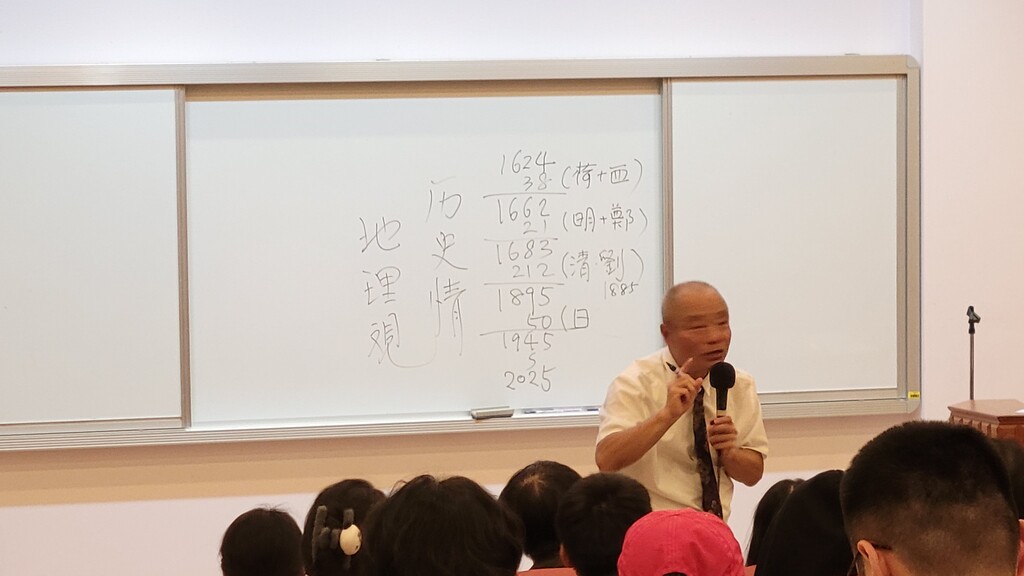 历史情
地理观
1624
38 (荷+西)
1662
21 (明+鄭)
1683
212 (清·劉)
1885
1895
50 (日
1945
5
2025